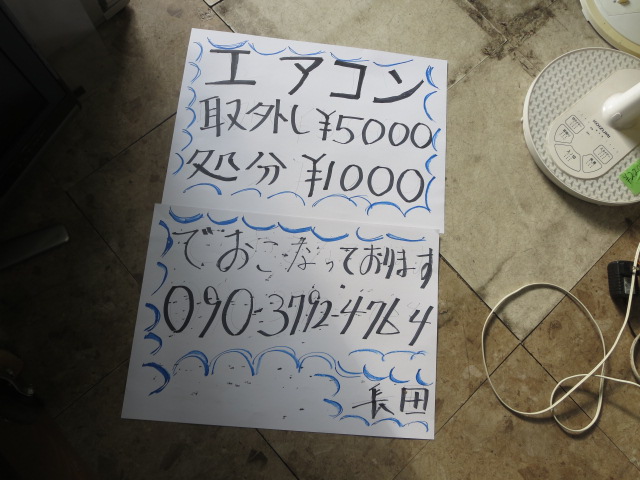 エアコン
取外し¥5000
処分 ¥1000
でおこなっております
090-3792-4764
長田